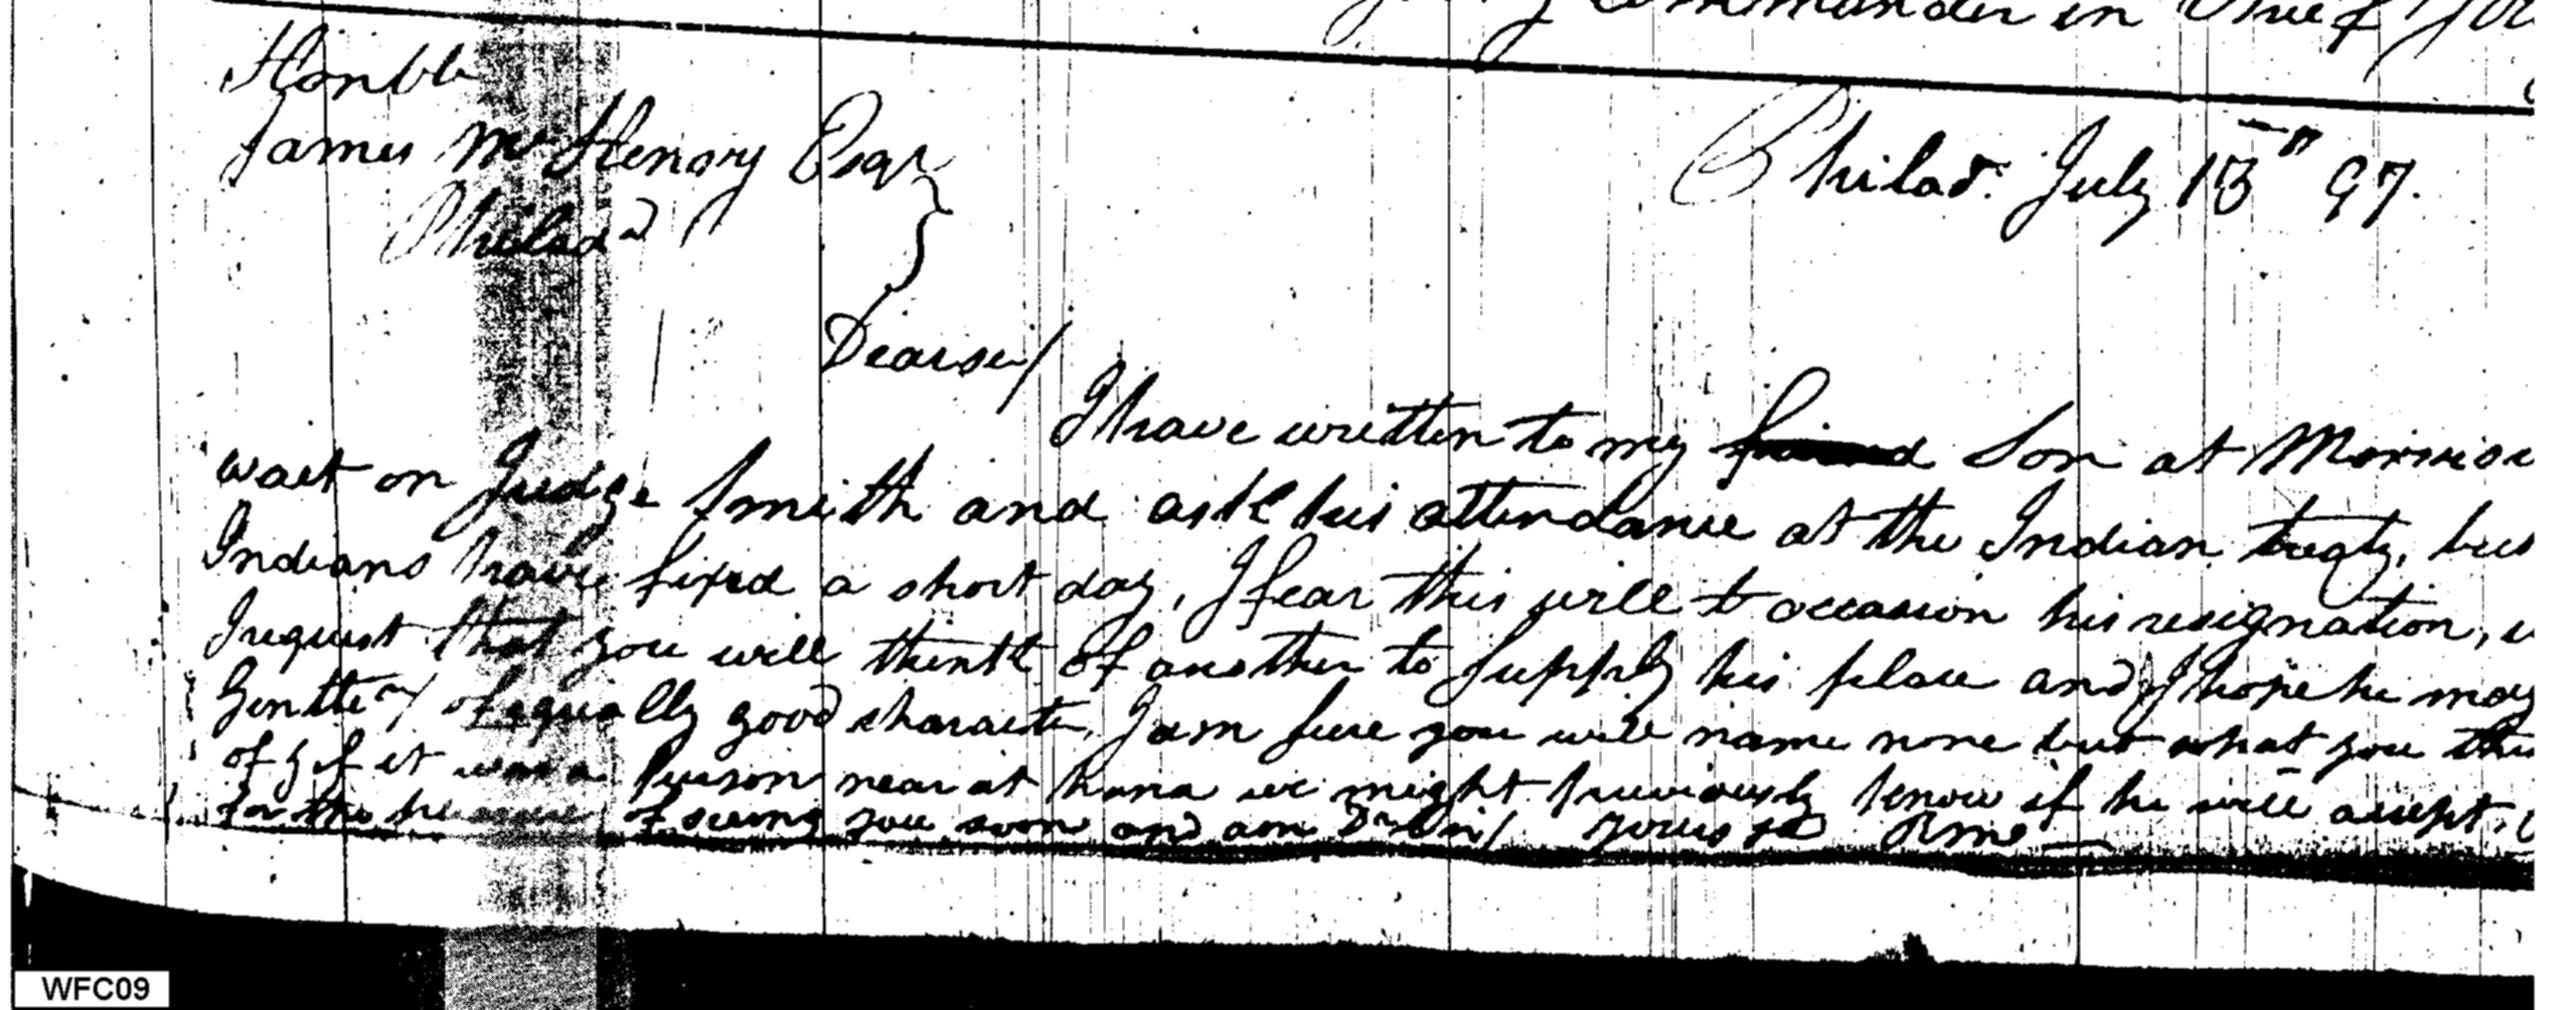 Commander in Chief
Honble
James McHenry Esqr
Philada
Philada. July 13th 97.
Dear sir/
I have written to my friend Son at Morrisv
wait on Judge Smith and ask his attendance at the Indian treaty, but
Indians have fixed a short day, I fear this will to occasion his resignation,
I request that you will think of another to supply his place and I hope he may
Gentlen/ of equally good character, I am sure you will name none but what you thi
of & if it was a person near at hand we might previously know if he will accept.
for the pleasure of seeing you soon and am Dr Sir/ yours &c RM
WFC09